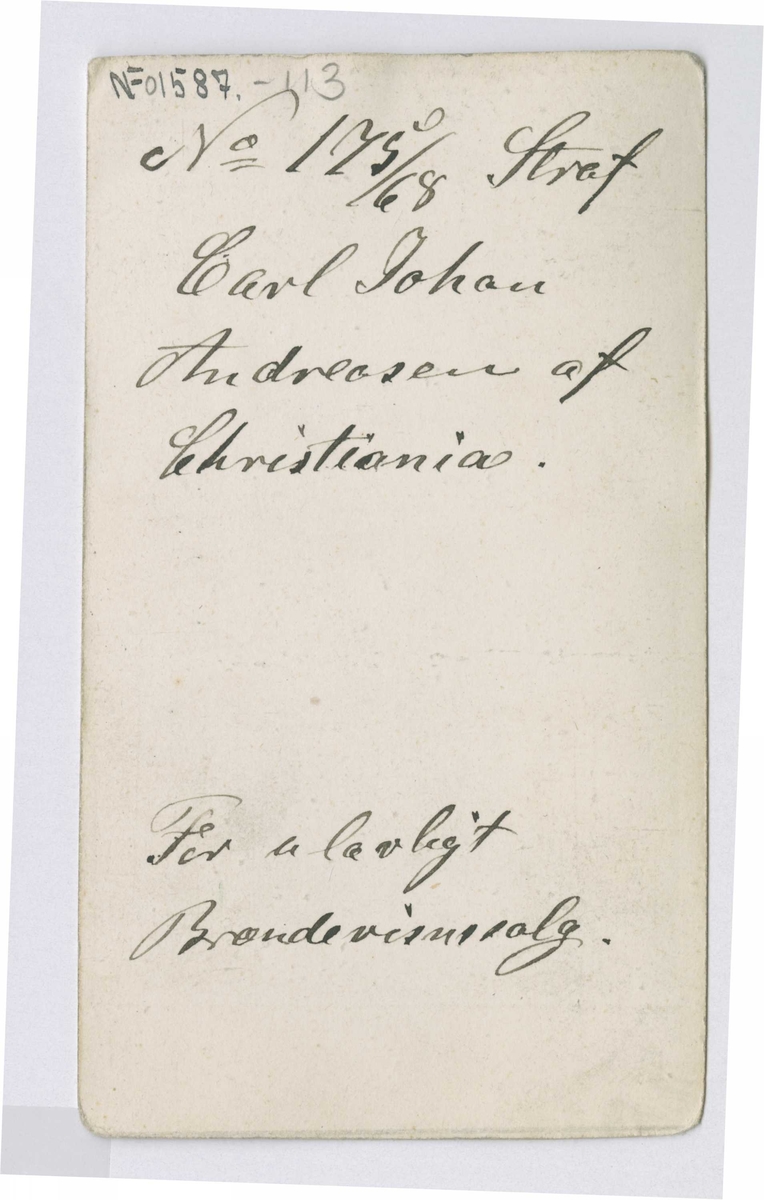 NF01587.-113
No 175/68 Straf
Carl Johan
Andreasen af
Christiania.
For ulovligt
Brændevinssalg.